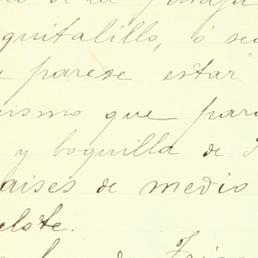 de la
quitalillo, ó se
parese estar
cismo que para
y boquilla de
aises de medio
elote.